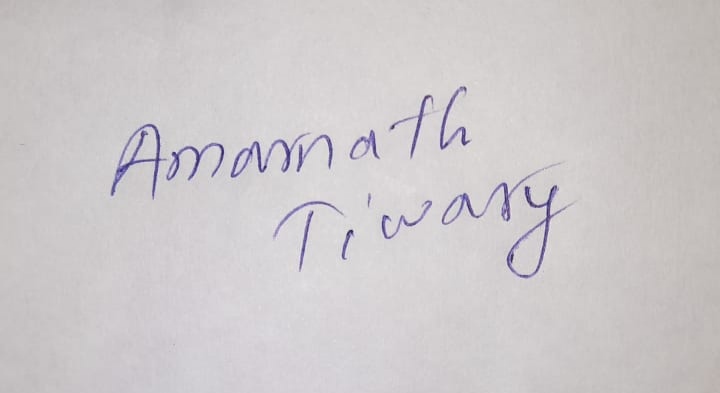 Amarnath
Tiwary